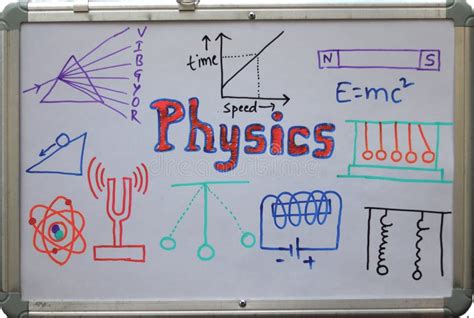 V
I
B
G
Y
O
R
time
speed
N S
E=mc²
Physics
- +
dreamstime